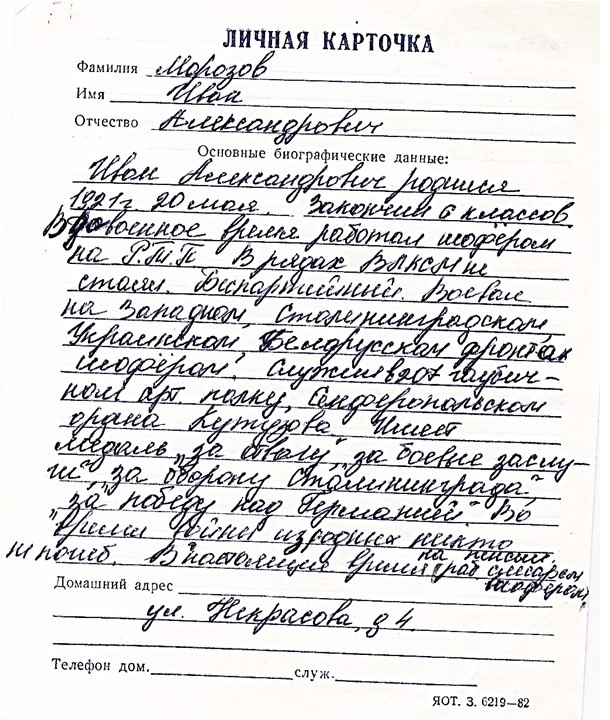 ЛИЧНАЯ КАРТОЧКА
Фамилия Морозов
Имя Иван
Отчество Александрович
Основные биографические данные:
Иван Александрович родился
1921 г 20 мая. Закончил 6 классов.
В довоенное время работал шофёром
на Р.Т.П В рядах ВЛКСМ не
стоял. Беспартийный. Воевал
на Западном, Сталининградском,
Украинском, Белорусском фронтах
шофёром. Служил в 207 гаубич-
ном арт. полку, Симферопольском
ордена Кутузова Имеет
медаль „за отвагу", „за боевые заслу-
ги", „за оборону Сталининграда",
„за победу над Германией" Во
время войны из родных никто
не погиб. В настоящее время на пенсии,
раб слесарем
шофером,
Домашний адрес
ул. Некрасова, д 4.
Телефон дом. служ.
ЯОТ. З. 6219—82